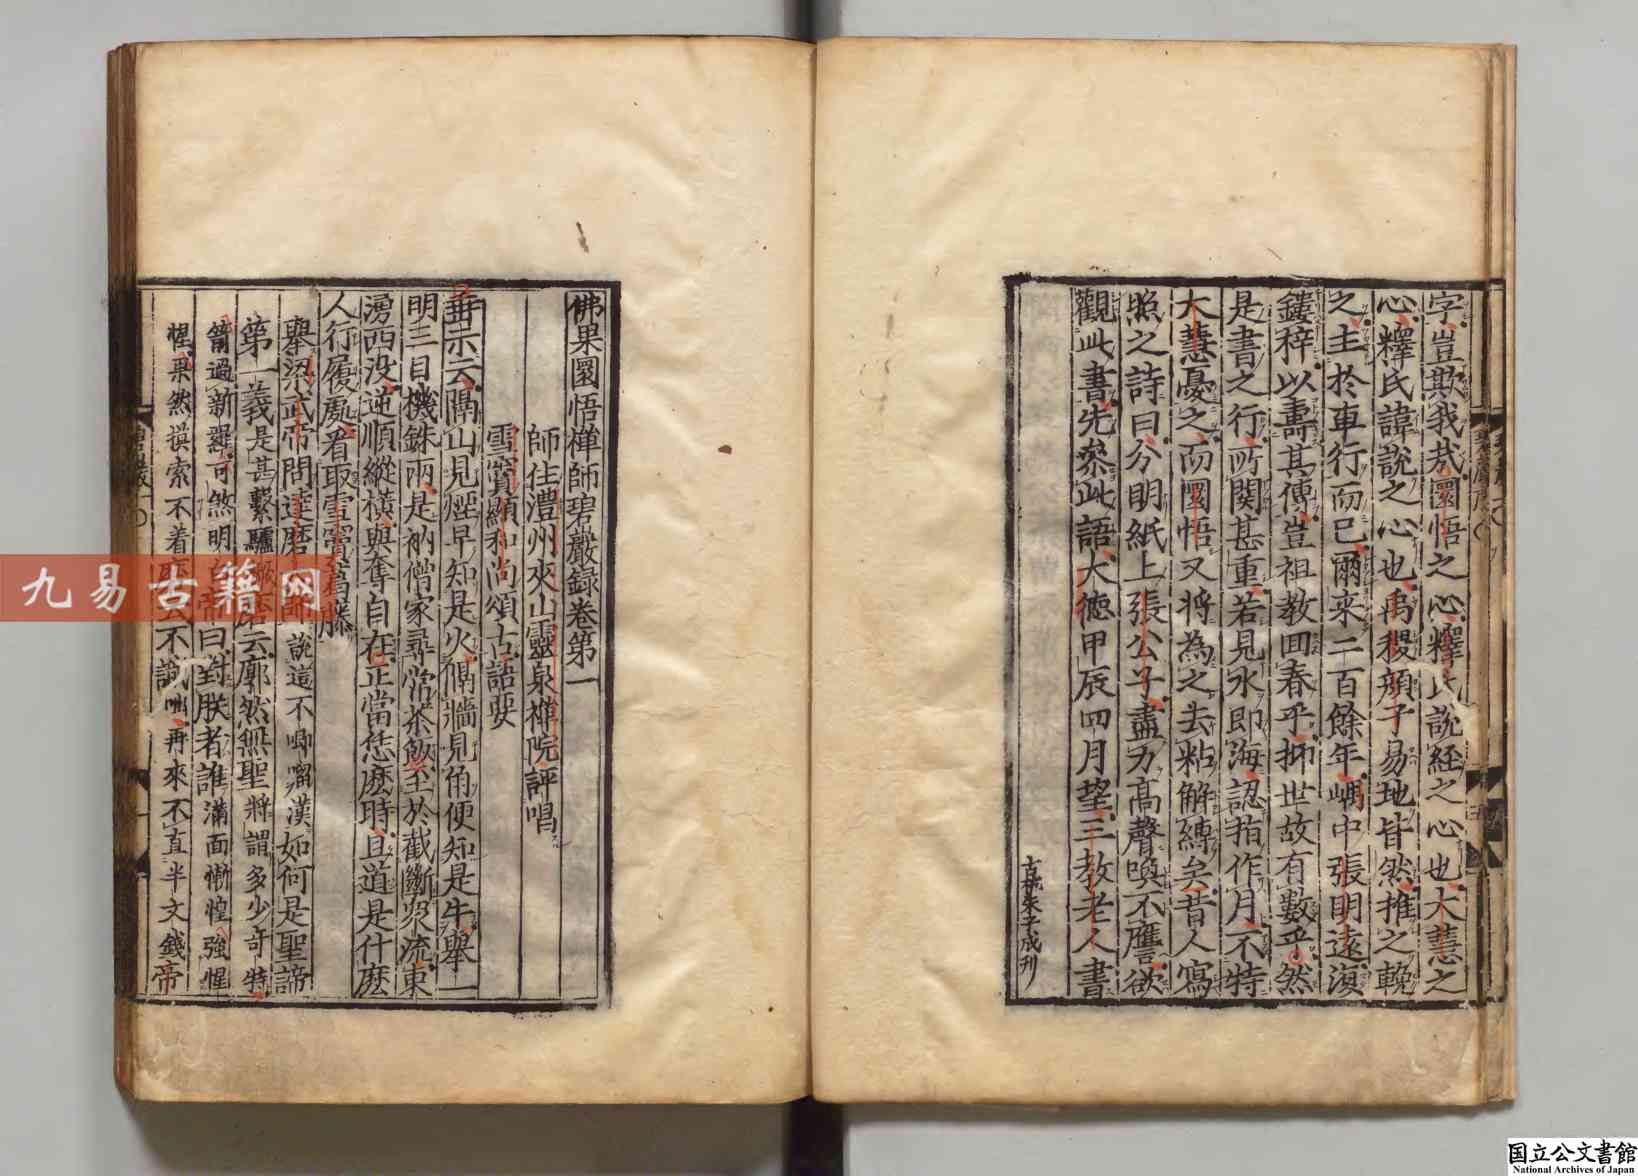 字豈欺我哉圜悟之心釋氏說經之心也大慧之
心釋氏諱說之心也禹稷顏子易地皆然推之輓
之主於車行而已爾来二百餘年嵎中張明遠復
鏤梓以壽其傳豈祖教囬春乎抑世故有數乎然
是書之行所関甚重若見水即海認指作月不特
大慧憂之而圜悟又将為之去粘解縛矣昔人寫
照之詩曰分明紙上張公子盡力高聲喚不譍欲
觀此書先叅此語大德甲辰四月望三教老人書
刊
碧巖序
五
佛果圜悟禅師碧巖録巻第一
師住澧州夾山靈泉禅院評唱
雪竇顯和尚頌古語要
垂示云隔山見煙早知是火隔牆見角便知是牛舉一
明三目機銖兩是衲僧家尋常茶飯至於截斷衆流東
湧西没逆順縱横與奪自在正當恁麽時且道是什麽
人行履處看取雪竇葛藤
舉梁武帝問達磨大師說這不唧𠺕漢如何是聖諦
第一義是甚繫驢橛磨云廓然無聖將謂多少奇特
箭過新羅可煞明白帝曰對朕者誰滿面慚惶強惺
惺果然摸索不着磨云不識咄再來不直半文錢帝
碧巖一
一
九易古籍网
国立公文書館
National Archives of Japan